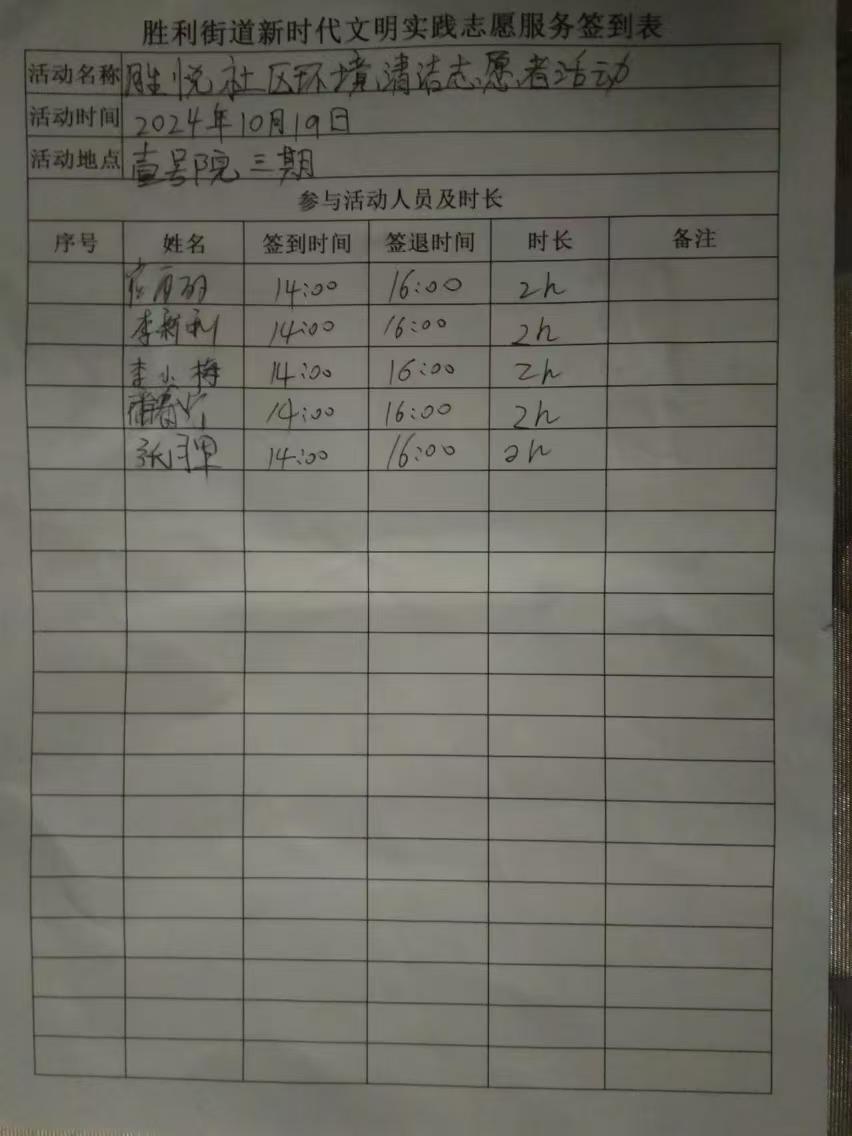 胜利街道新时代文明实践志愿服务签到表
活动名称 胜悦社区环境清洁志愿者活动
活动时间 2024年10月19日
活动地点 壹号院三期
参与活动人员及时长
序号 姓名 签到时间 签退时间 时长 备注
14:00 16:00 2h
李新利 14:00 16:00 2h
李小梅 14:00 16:00 2h
14:00 16:00 2h
张 14:00 16:00 2h